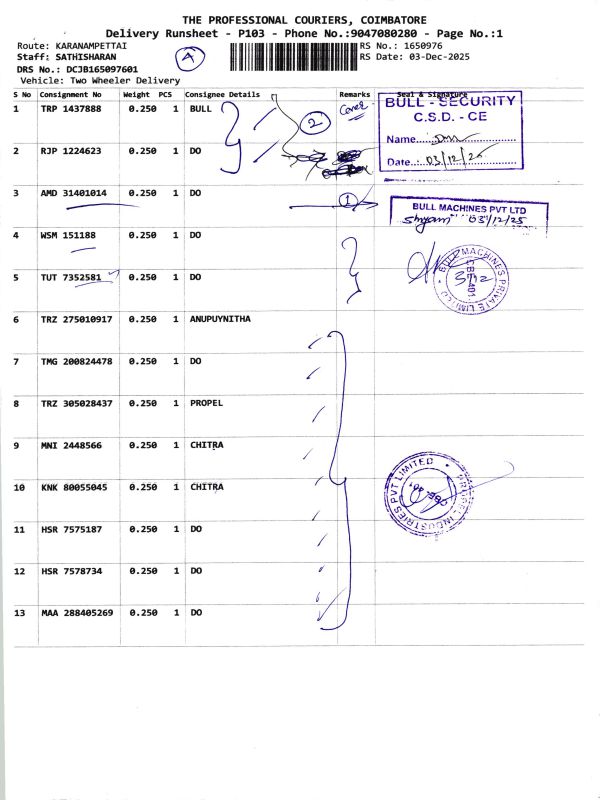 THE PROFESSIONAL COURIERS, COIMBATORE
Delivery Runsheet - P103 - Phone No.:9047080280 - Page No.:1
Route: KARANAMPETTAI
Staff: SATHISHARAN
4
DRS No.: DCJB165097601
Vehicle: Two Wheeler Delivery
RS No.: 1650976
RS Date: 03-Dec-2025
S No Consignment No Weight PCS Consignee Details Remarks Seal & Signature
1 TRP 1437888 0.250 1 BULL
2 Cover
BULL - SECURITY
C.S.D. - CE
Name
Date 03/12/25
2 RJP 1224623 0.250 1 DO
3 AMD 31401014 0.250 1 DO
1
BULL MACHINES PVT LTD
Shyam 03/12/25
4 WSM 151188 0.250 1 DO
5 TUT 7352581 0.250 1 DO
BULL MACHINES PRIVATE LIMITED
3/12
6 TRZ 275010917 0.250 1 ANUPUYNITHA
7 TMG 200824478 0.250 1 DO
8 TRZ 305028437 0.250 1 PROPEL
9 MNI 2448566 0.250 1 CHITRA
10 KNK 80055045 0.250 1 CHITRA
PROPEL INDUSTRIES PVT LIMITED
11 HSR 7575187 0.250 1 DO
12 HSR 7578734 0.250 1 DO
13 MAA 288405269 0.250 1 DO